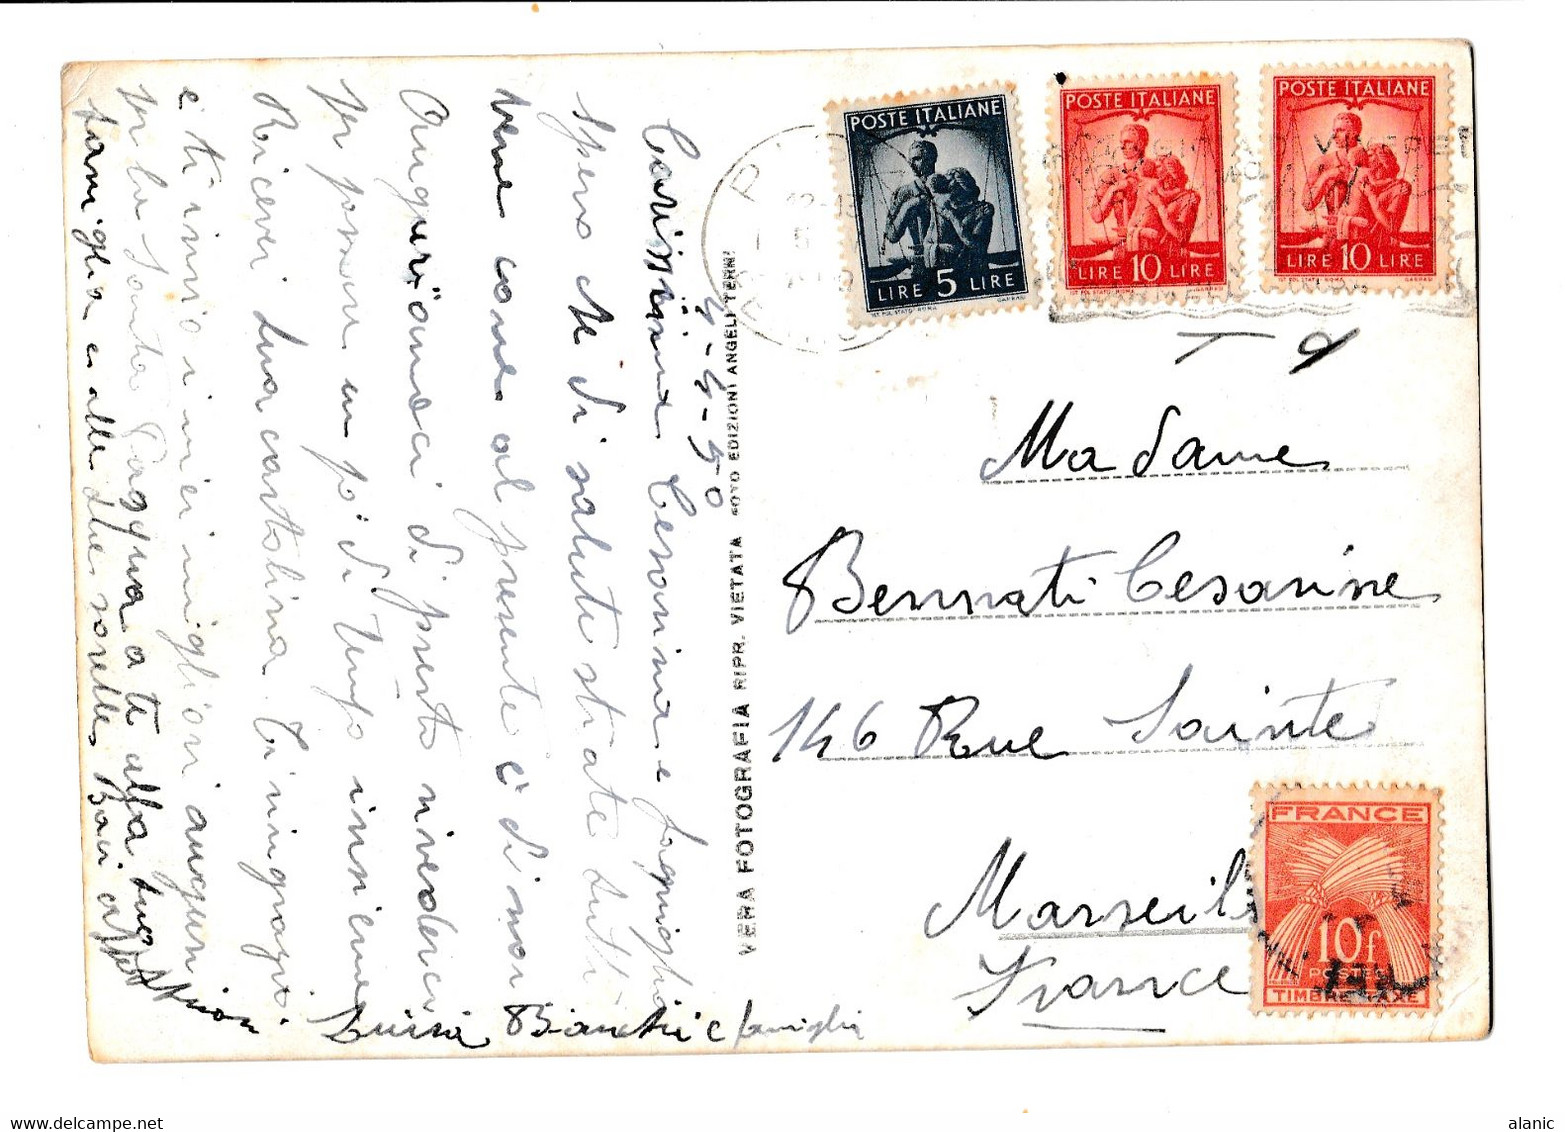 4-4-50
Carissima Cesarina e famiglia
Spero che di salute state tutti
bene come al presente è di noi
Auguriamoci di presto rivederci
per passare un po' di tempo insieme
Ricevei tua cartolina ti ringrazio
e ti invio i miei migliori auguri
per la Santa Pasqua a te alla tua
famiglia e alle due sorelle Baci affettuosissimi
Luisa Bianchi e famiglia
VERA FOTOGRAFIA RIPR. VIETATA FOTO EDIZIONI ANGELI TERNI
POSTE ITALIANE
LIRE 5 LIRE
POSTE ITALIANE
LIRE 10 LIRE
POSTE ITALIANE
LIRE 10 LIRE
T
Madame
Bennati Cesarine
146 Rue Sainte
Marseille
France
FRANCE
10F
POSTES
TIMBRE TAXE
alanic